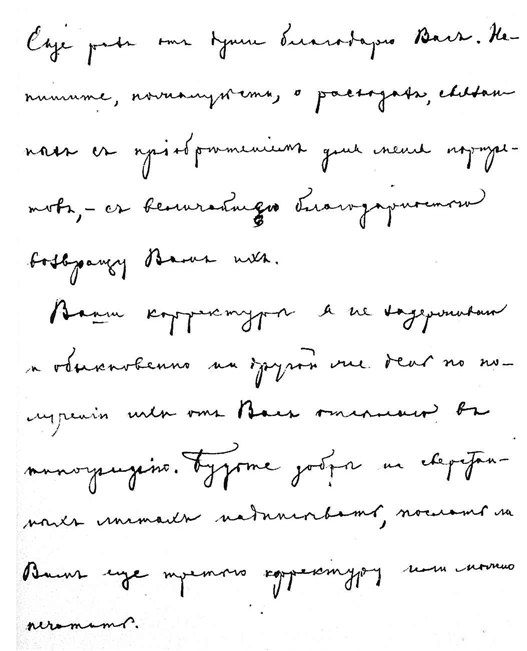 Еще разъ отъ души благодарю Васъ. На-
пишите, пожалуйста, о расходахъ, связан-
ныхъ съ пріобрѣтеніемъ для меня портре-
товъ, – съ величайшею благодарностью
возвращу Вамъ ихъ.
Ваши корректуры я не задерживаю
и обыкновенно на другой же день по по-
лученіи ихъ отъ Васъ отсылаю въ
типографію. Будьте добры на сверстан-
ныхъ листахъ надписывать, послать ли
Вамъ еще третью корректуру или можно
печатать.